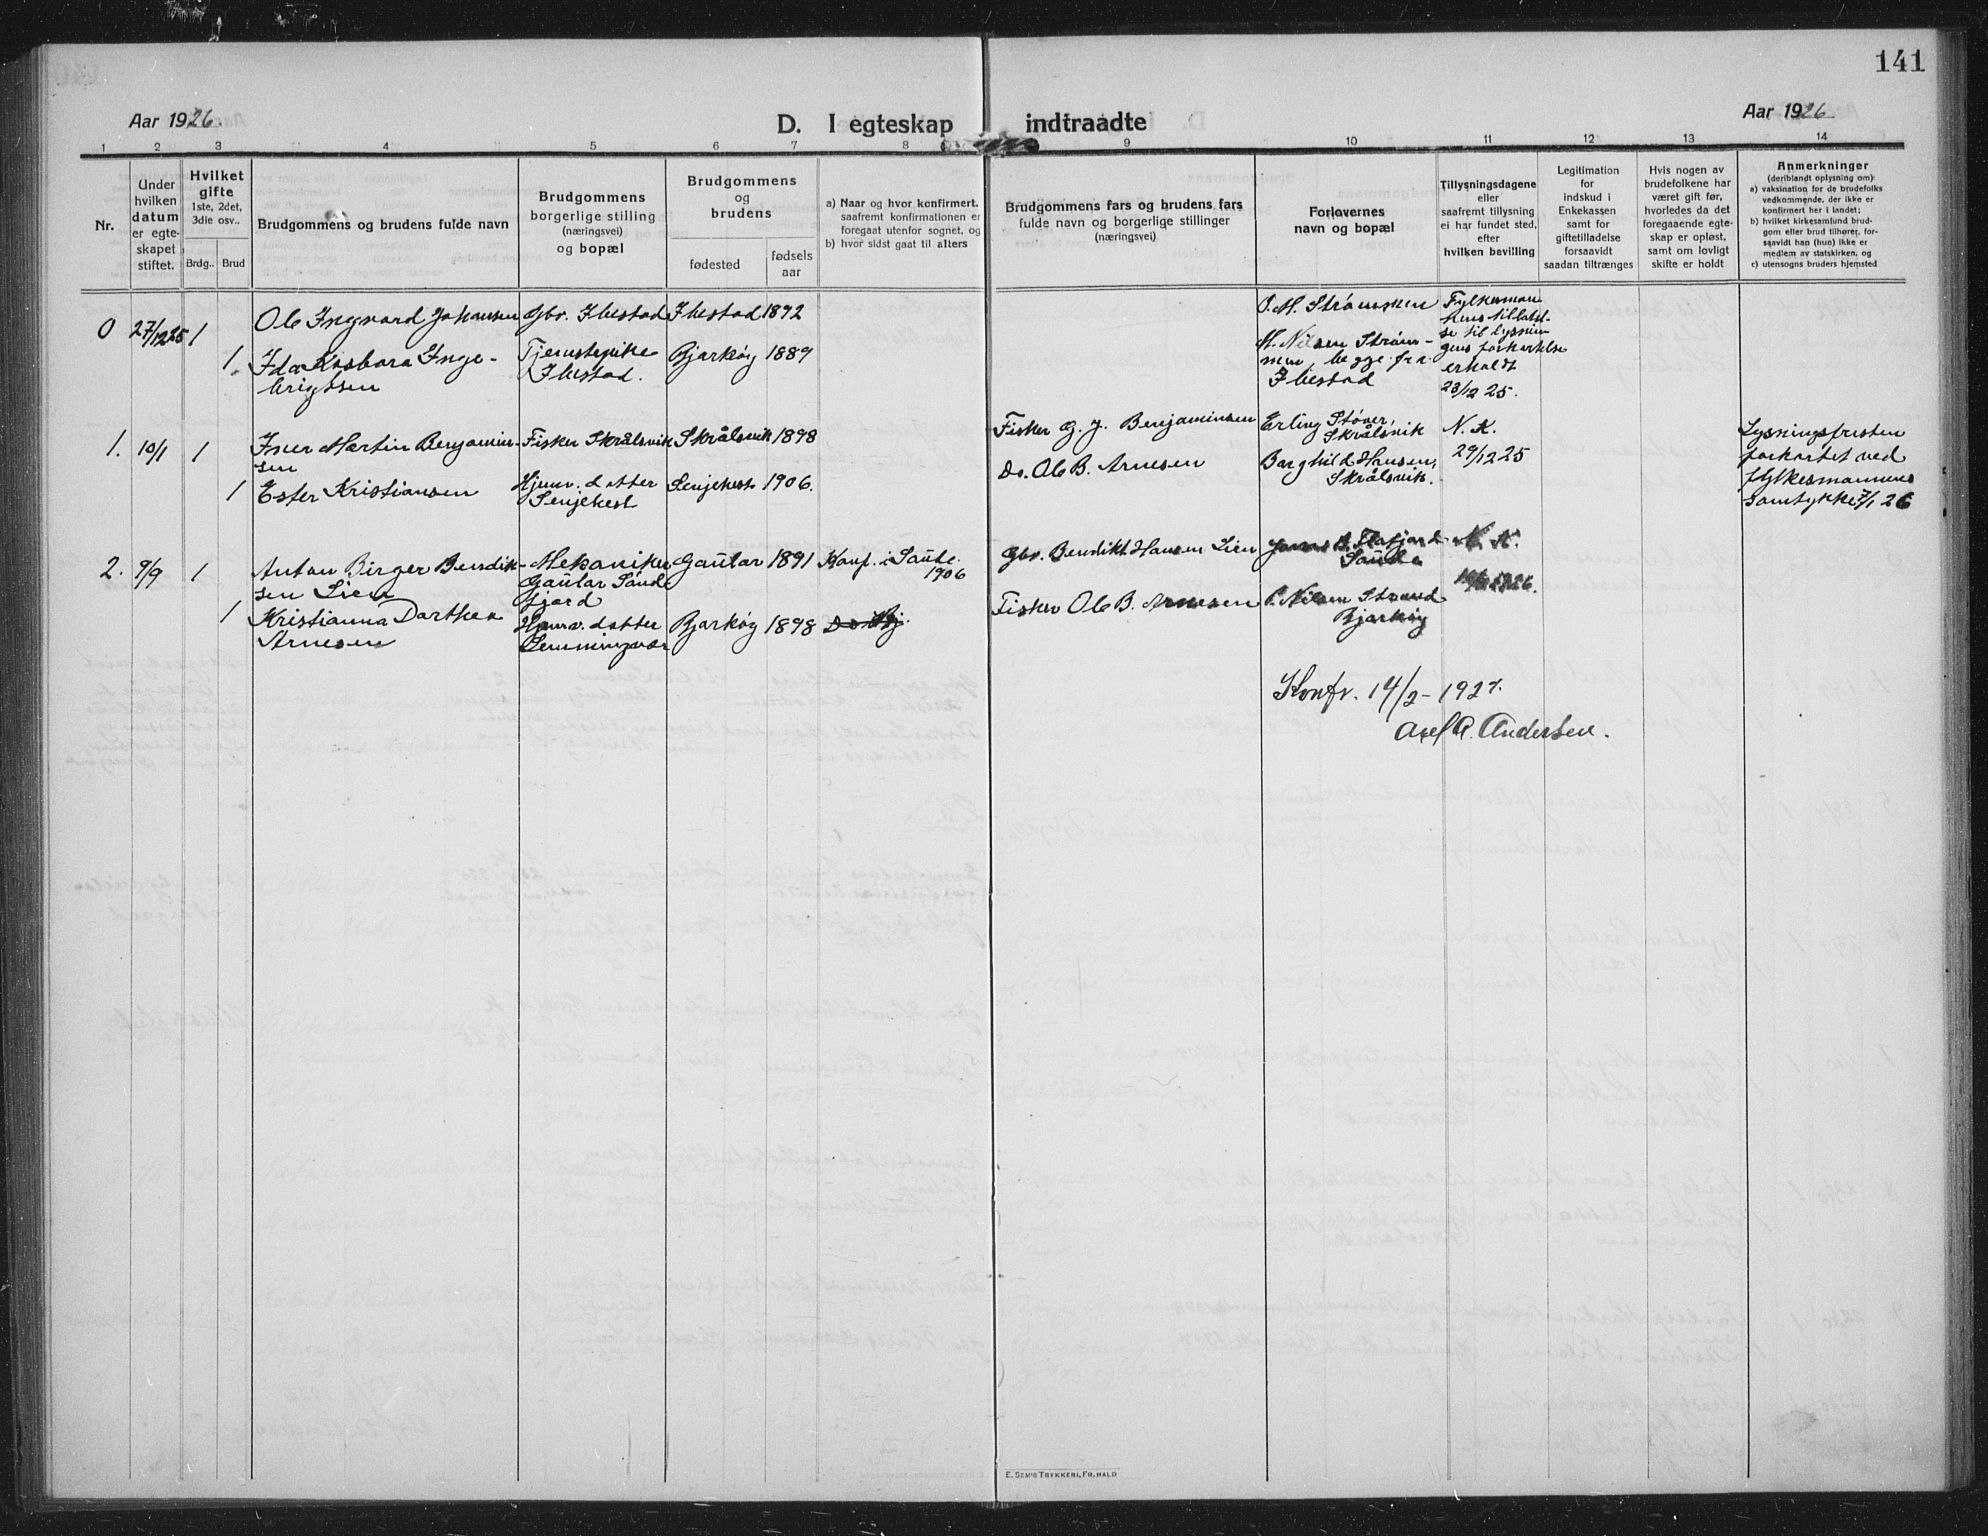 141
Aar 1926.
D. I egteskap indtraadte
Aar 1926
1 2 3 4 5 6 7 8 9 10 11 12 13 14
Nr.
Under hvilken datum er egteskapet stiftet.
Hvilket gifte
1ste, 2det, 3die osv..
Brdg.. Brud
Brudgommens og brudens fulde navn
Brudgommens borgerlige stilling (næringsvei) og bopæl
Brudgommens og brudens
fødested
fødsels aar
a) Naar og hvor konfirmert. saafremt konfirmationen er foregaat utenfor sognet, og
b) hvor sidst gaat til alters
Brudgommens fars og brudens fars fulde navn og borgerlige stillinger (næringsvei)
Forlovernes navn og bopæl
Tillysningsdagene eller saafremt tillysning ei har fundet sted, efter hvilken bevilling
Legitimation for indskud i Enkekassen samt for giftetilladelse forsaavidt saadan tiltrænges
Hvis nogen av brudefolkene har været gift før, hvorledes da det foregaaende egteskap er opløst, samt om lovligt skifte er holdt
Anmerkninger
(deriblandt oplysning om):
a) vaksination for de brudefolks vedkommende, der ikke er konfirmert her i landet;
b) hvilket kirkesamfund brudgom eller brud tilhører, forsaavidt han (hun) ikke er medlem av statskirken, og
c) utensogns bruders hjemsted
0 27/12 25 1 Ole Ingvard Johansen Gbr. Ibestad Ibestad 1892
O. M. Strømmen
Fylkesman
nens tillatel-
se til lysnin
gens forkortelse
erholdt
23/12 25.
1 Ida Kosbara Inge-
brigtsen
Tjenstepike
Ibestad.
Bjarkøy 1889
M. Nilsen Strøm-
men, begge fra
Ibestad
1. 10/1 1 Iver Martin Benjamin-
sen
Fisker Skrålsvik Skrålsvik 1898
Fisker G. J. Benjaminsen
Erling Støver,
Skrålsvik
N. K.
29/12 25
Lysningsfristen
forkortet ved
fylkesmannens
samtykke 7/1 26
1 Ester Kristiansen
Hjemv. datter
Senjehest
Senjehest 1906.
Do. Ole B. Arnesen
Borghild Hansen,
Skrålsvik.
2. 9/9 1 Anton Birger Bendik-
sen Lien
Mekaniker
Gaular Sønd
fjord
Gaular 1891 Konf. i Saude.
1906
Gbr. Bendikt Hansen Lien
Flatjord
Saude
N. K.
1926.
1 Kristianna Dorthea
Arnesen
Hjemv. datter
Lemmingvær
Bjarkøy 1898
Fisker Ole B. Arnesen
P. Nilsen Strand
Bjarkøy
Konfr. 14/2 - 1927.
Axel A. Andersen.
E. SEM'S TRYKKERI, FR.HALD